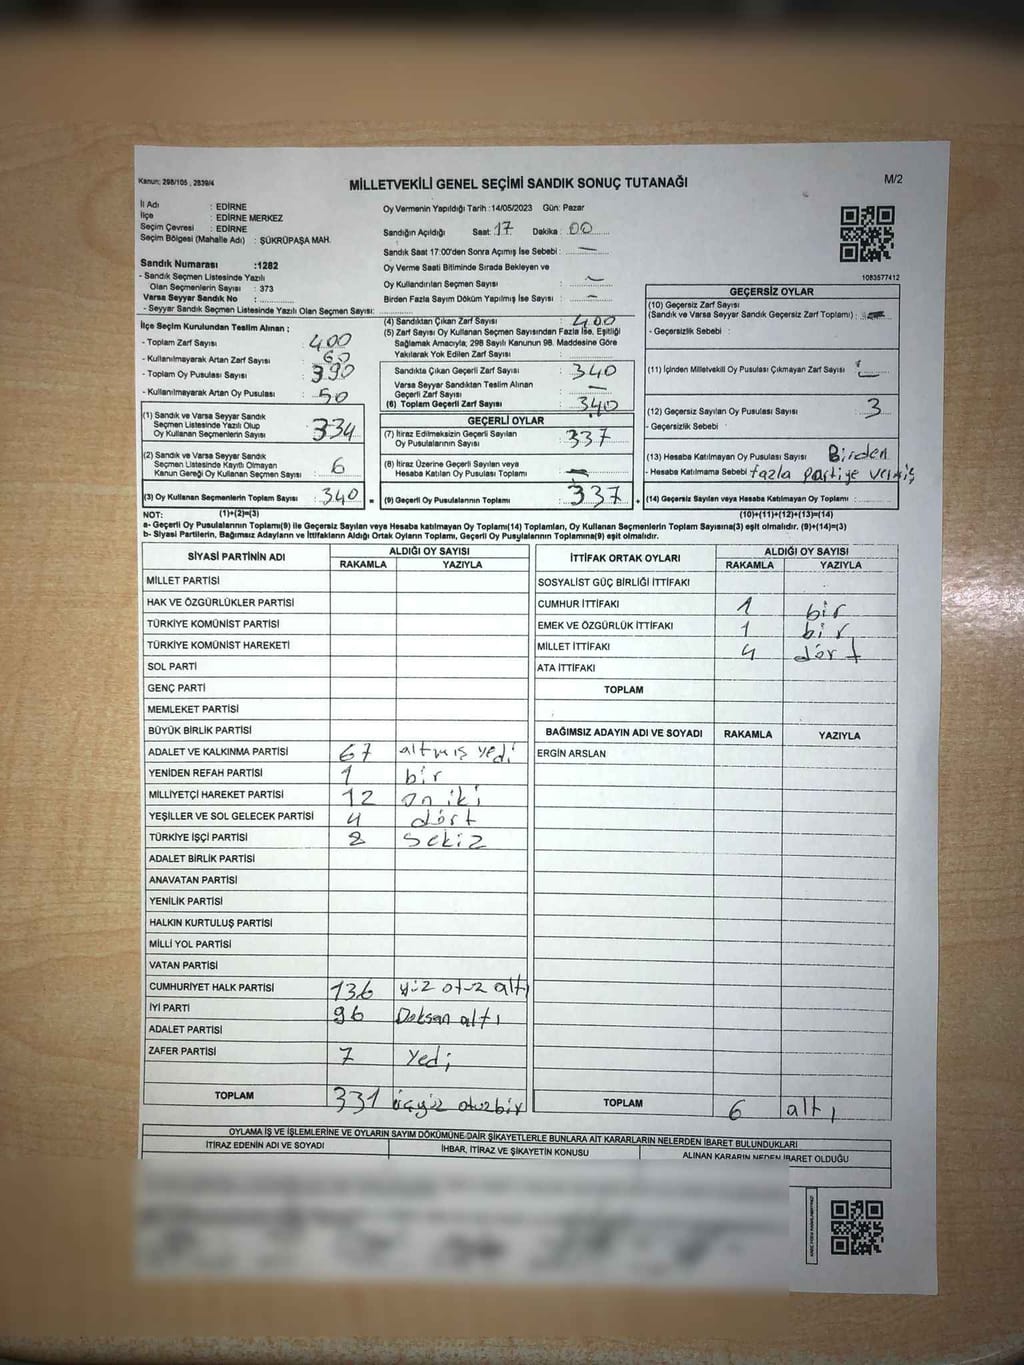 Kanun; 298/105 , 2839/4
MİLLETVEKİLİ GENEL SEÇİMİ SANDIK SONUÇ TUTANAĞI
M/2
İl Adı : EDİRNE
İlçe : EDİRNE MERKEZ
Seçim Çevresi : EDİRNE
Seçim Bölgesi (Mahalle Adı) : ŞÜKRÜPAŞA MAH.
Sandık Numarası :1282
- Sandık Seçmen Listesinde Yazılı
Olan Seçmenlerin Sayısı : 373
Varsa Seyyar Sandık No :
- Seyyar Sandık Seçmen Listesinde Yazılı Olan Seçmen Sayısı:
Oy Vermenin Yapıldığı Tarih :14/05/2023 Gün: Pazar
Sandığın Açıldığı Saat: 17 Dakika : 00
Sandık Saat 17:00'den Sonra Açımış İse Sebebi : —
Oy Verme Saati Bitiminde Sırada Bekleyen ve
Oy Kullandırılan Seçmen Sayısı : —
Birden Fazla Sayım Döküm Yapılmış İse Sayısı : —
1083577412
İlçe Seçim Kurulundan Teslim Alınan ;
- Toplam Zarf Sayısı : 400
- Kullanılmayarak Artan Zarf Sayısı : 60
- Toplam Oy Pusulası Sayısı : 390
- Kullanılmayarak Artan Oy Pusulası : 50
(1) Sandık ve Varsa Seyyar Sandık
Seçmen Listesinde Yazılı Olup
Oy Kullanan Seçmenlerin Sayısı : 334
(2) Sandık ve Varsa Seyyar Sandık
Seçmen Listesinde Kayıtlı Olmayan
Kanun Gereği Oy Kullanan Seçmen Sayısı : 6
(3) Oy Kullanan Seçmenlerin Toplam Sayısı : 340
(4) Sandıktan Çıkan Zarf Sayısı : 400
(5) Zarf Sayısı Oy Kullanan Seçmen Sayısından Fazla İse, Eşitliği
Sağlamak Amacıyla; 298 Sayılı Kanunun 98. Maddesine Göre
Yakılarak Yok Edilen Zarf Sayısı :
Sandıkta Çıkan Geçerli Zarf Sayısı : 340
Varsa Seyyar Sandıktan Teslim Alınan
Geçerli Zarf Sayısı : —
(6) Toplam Geçerli Zarf Sayısı : 340
GEÇERLİ OYLAR
(7) İtiraz Edilmeksizin Geçerli Sayılan
Oy Pusulalarının Sayısı : 337
(8) İtiraz Üzerine Geçerli Sayılan veya
Hesaba Katılan Oy Pusulası Toplamı : —
= (9) Geçerli Oy Pusulalarının Toplamı : 337 +
GEÇERSİZ OYLAR
(10) Geçersiz Zarf Sayısı
(Sandık ve Varsa Seyyar Sandık Geçersiz Zarf Toplamı) :
- Geçersizlik Sebebi :
(11) İçinden Milletvekili Oy Pusulası Çıkmayan Zarf Sayısı :
(12) Geçersiz Sayılan Oy Pusulası Sayısı : 3
- Geçersizlik Sebebi :
(13) Hesaba Katılmayan Oy Pusulası Sayısı : Birden
- Hesaba Katılmama Sebebi : fazla partiye vermiş
(14) Geçersiz Sayılan veya Hesaba Katılmayan Oy Toplamı :
NOT: (1)+(2)=(3) (10)+(11)+(12)+(13)=(14)
a- Geçerli Oy Pusulalarının Toplamı(9) ile Geçersiz Sayılan veya Hesaba katılmayan Oy Toplamı(14) Toplamları, Oy Kullanan Seçmenlerin Toplam Sayısına(3) eşit olmalıdır. (9)+(14)=(3)
b- Siyasi Partilerin, Bağımsız Adayların ve İttifakların Aldığı Ortak Oyların Toplamı, Geçerli Oy Pusulalarının Toplamına(9) eşit olmalıdır.
SİYASİ PARTİNİN ADI ALDIĞI OY SAYISI
RAKAMLA YAZIYLA
MİLLET PARTİSİ
HAK VE ÖZGÜRLÜKLER PARTİSİ
TÜRKİYE KOMÜNİST PARTİSİ
TÜRKİYE KOMÜNİST HAREKETİ
SOL PARTİ
GENÇ PARTİ
MEMLEKET PARTİSİ
BÜYÜK BİRLİK PARTİSİ
ADALET VE KALKINMA PARTİSİ 67 altmış yedi
YENİDEN REFAH PARTİSİ 1 bir
MİLLİYETÇİ HAREKET PARTİSİ 12 on iki
YEŞİLLER VE SOL GELECEK PARTİSİ 4 dört
TÜRKİYE İŞÇİ PARTİSİ 8 sekiz
ADALET BİRLİK PARTİSİ
ANAVATAN PARTİSİ
YENİLİK PARTİSİ
HALKIN KURTULUŞ PARTİSİ
MİLLİ YOL PARTİSİ
VATAN PARTİSİ
CUMHURİYET HALK PARTİSİ 136 yüz otuz altı
İYİ PARTİ 96 Doksan altı
ADALET PARTİSİ
ZAFER PARTİSİ 7 yedi
TOPLAM 331 üçyüz otuzbir
İTTİFAK ORTAK OYLARI ALDIĞI OY SAYISI
RAKAMLA YAZIYLA
SOSYALİST GÜÇ BİRLİĞİ İTTİFAKI
CUMHUR İTTİFAKI 1 bir
EMEK VE ÖZGÜRLÜK İTTİFAKI 1 bir
MİLLET İTTİFAKI 4 dört
ATA İTTİFAKI
TOPLAM
BAĞIMSIZ ADAYIN ADI VE SOYADI RAKAMLA YAZIYLA
ERGİN ARSLAN
TOPLAM 6 altı
OYLAMA İŞ VE İŞLEMLERİNE VE OYLARIN SAYIM DÖKÜMÜNE DAİR ŞİKAYETLERLE BUNLARA AİT KARARLARIN NELERDEN İBARET BULUNDUKLARI
İTİRAZ EDENİN ADI VE SOYADI İHBAR, İTİRAZ VE ŞİKAYETİN KONUSU ALINAN KARARIN NEDEN İBARET OLDUĞU